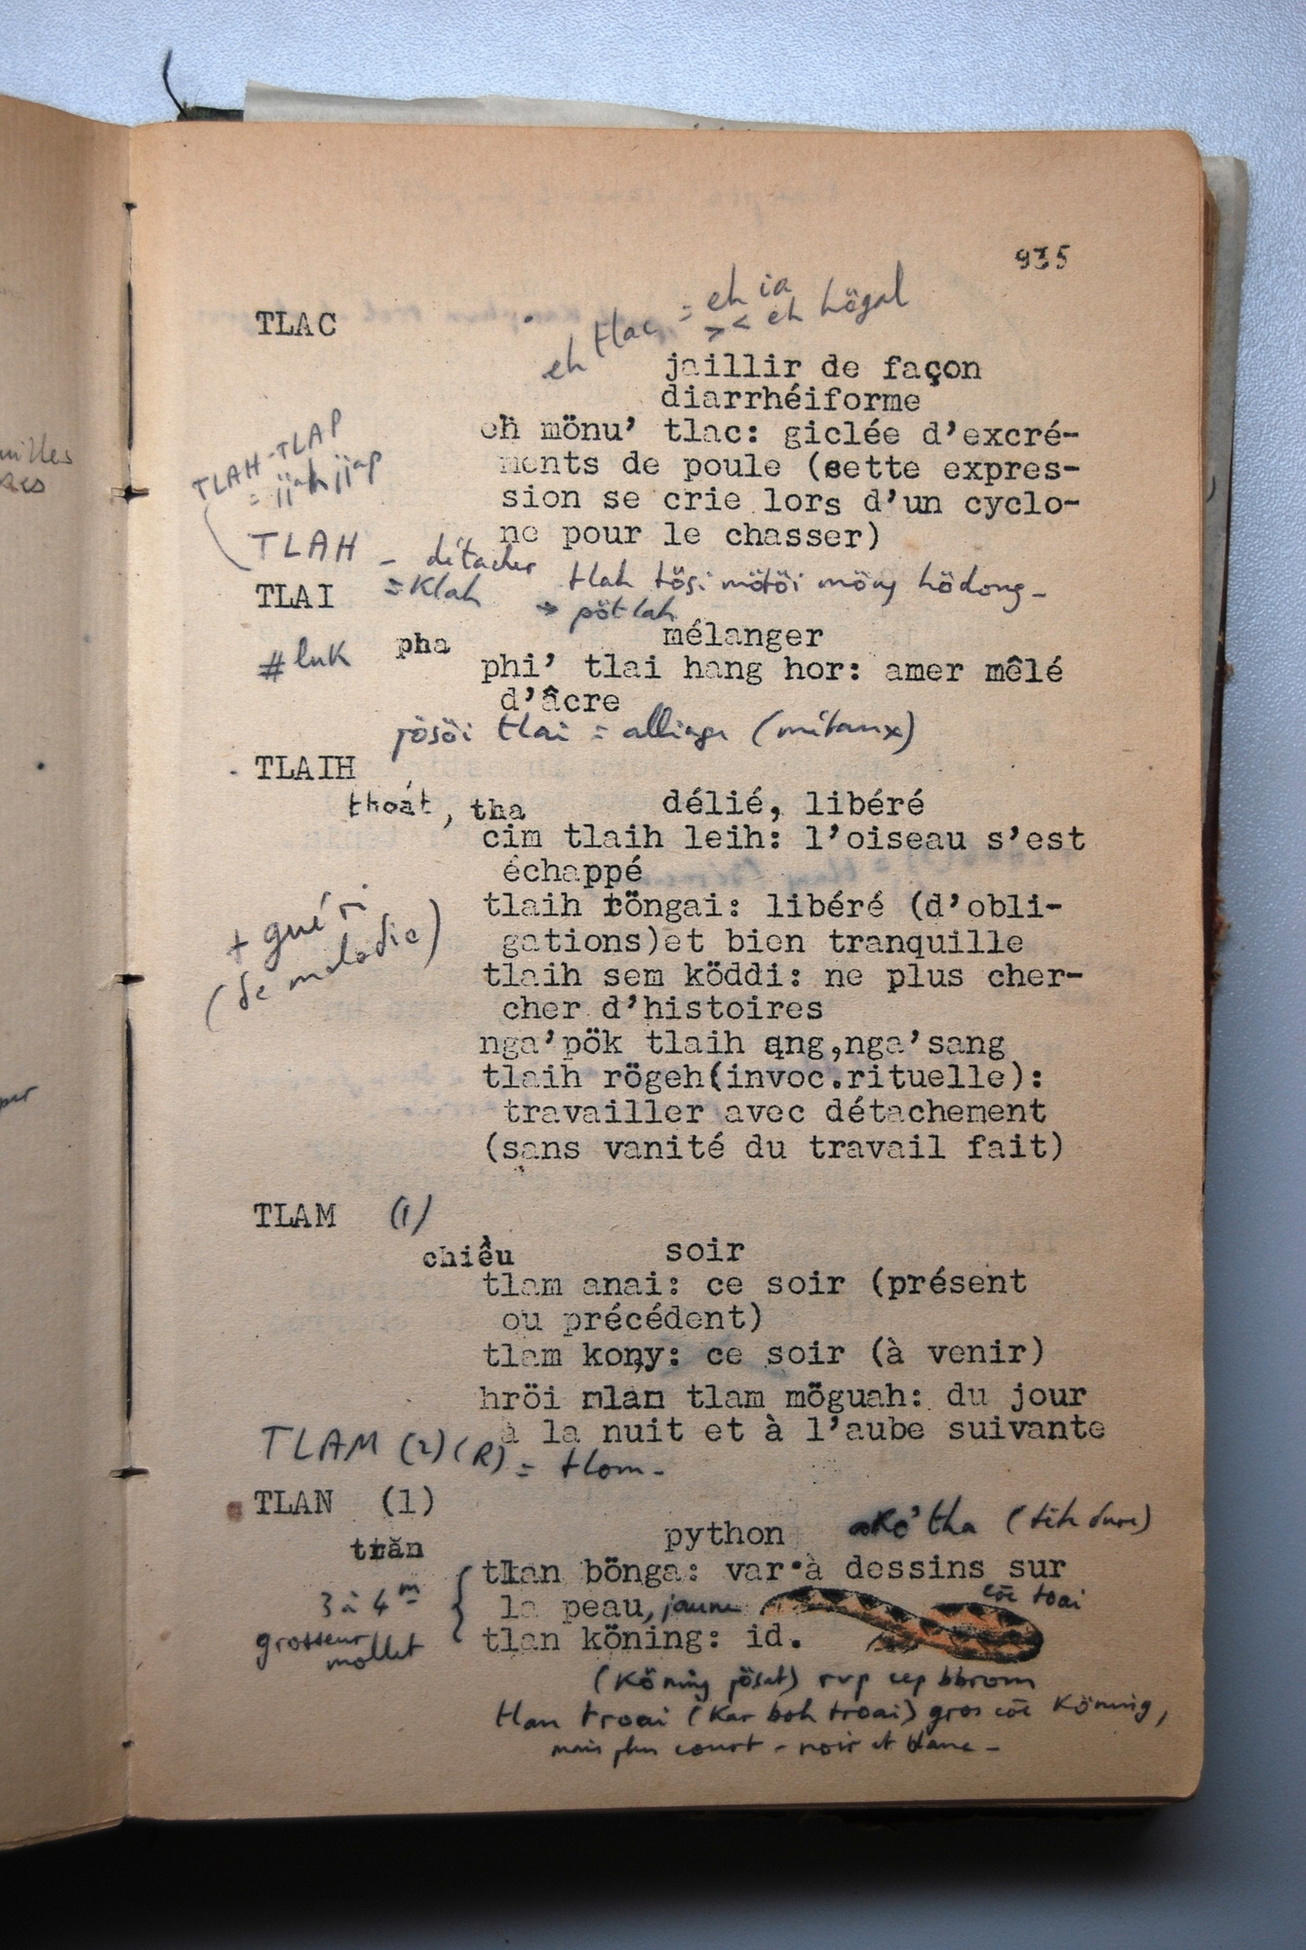 935
TLAC
eh tlac = eh ia
>< eh högal
jaillir de façon
diarrhéiforme
eh mönu' tlac: giclée d'excré-
ments de poule (cette expres-
sion se crie lors d'un cyclo-
ne pour le chasser)
TLAH-TLAP
= jjah jjap
TLAH - détacher tlah tösi mötöi möng hödong -
= Klah → pötlah
TLAI
# luk
pha mélanger
phi' tlai hang hor: amer mêlé
d'âcre
jösöi tlai = alliage (métaux)
TLAIH
thoát, tha délié, libéré
cim tlaih leih: l'oiseau s'est
échappé
tlaih röngai: libéré (d'obli-
gations)et bien tranquille
+ guéri
(de maladie)
tlaih sem köddi: ne plus cher-
cher d'histoires
nga'pök tlaih ang,nga'sang
tlaih rögeh(invoc.rituelle):
travailler avec détachement
(sans vanité du travail fait)
TLAM (1)
chiều soir
tlam anai: ce soir (présent
ou précédent)
tlam kony: ce soir (à venir)
hröi mlan tlam möguah: du jour
à la nuit et à l'aube suivante
TLAM (2) (R) = tlom -
TLAN (1)
trăn python akö'tha
tlan bönga: var.à dessins sur
la peau, jaune
3 à 4 m
grosseur
mollet
tlan köning: id.
toai
(Köning jösat) rup cep bbrom
tlan troai (Kar boh troai) gros Köning,
mais plus court - noir et blanc -